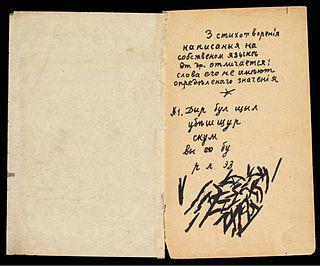 3 стихотворенія
написанія на
собственом языке
от др. отличается:
слова его не имеют
определенаго значенія
*
№1. Дыр бул щыл
убѣшщур
скум
вы со бу
р л эз